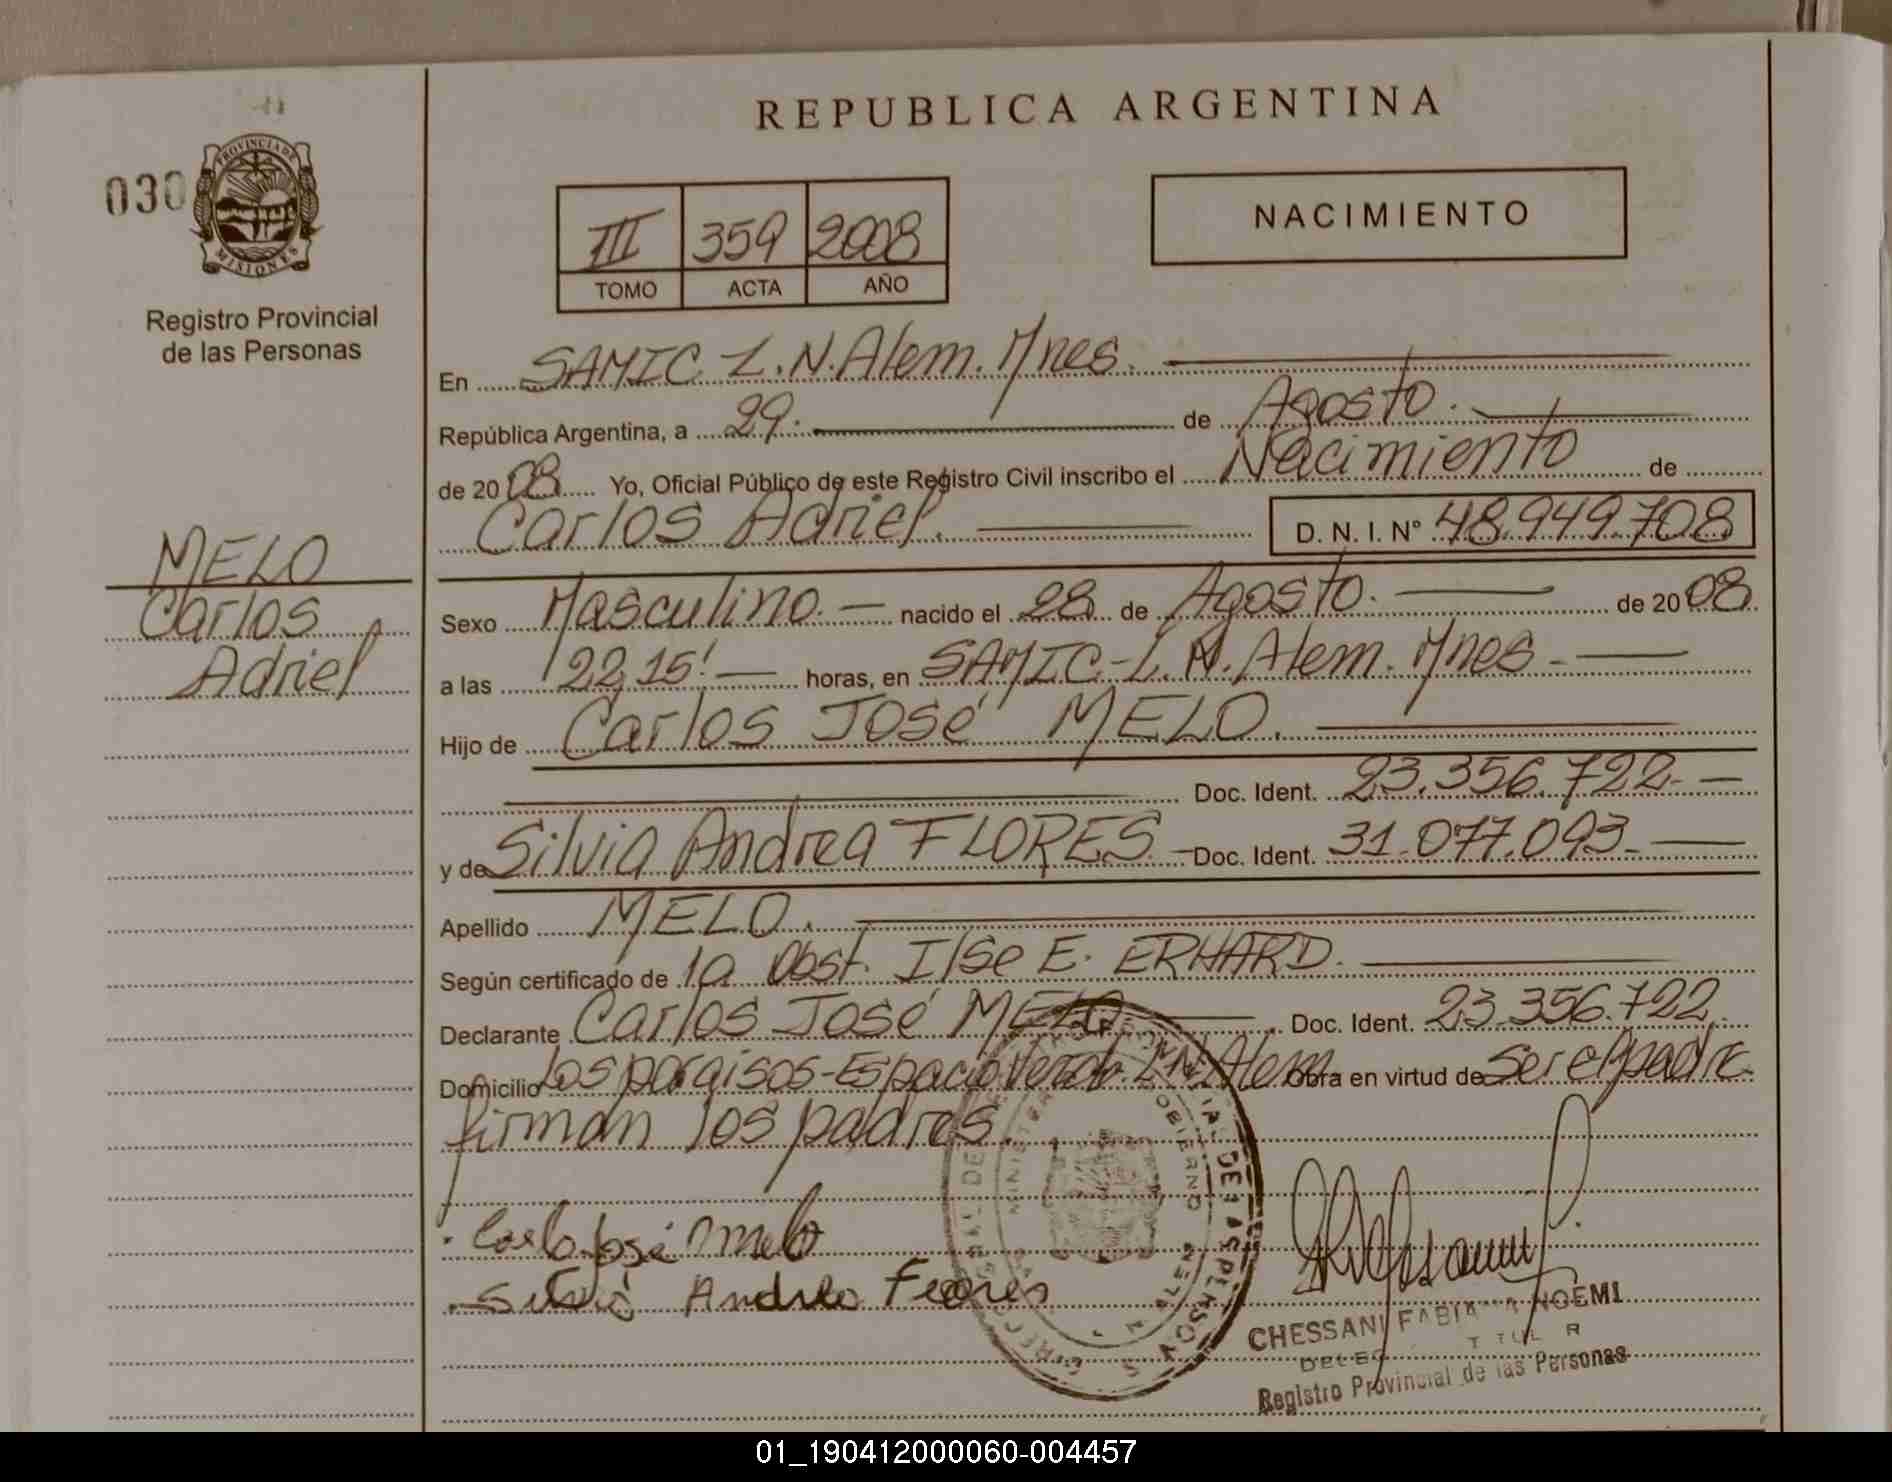 REPUBLICA ARGENTINA
030
PROVINCIA DE
MISIONES
Registro Provincial
de las Personas
MELO
Carlos
Adriel
III 359 2008
TOMO ACTA AÑO
NACIMIENTO
En SAMIC L.N.Alem. Mnes.
República Argentina, a 29. de Agosto.
de 2008 Yo, Oficial Público de este Registro Civil inscribo el Nacimiento de
Carlos Adriel. D. N. I. N° 48.949.708
Sexo Masculino. nacido el 28 de Agosto. de 2008
a las 22,15' horas, en SAMIC-L.N.Alem. Mnes
Hijo de Carlos José MELO.
Doc. Ident. 23.356.722
y de Silvia Andrea FLORES Doc. Ident. 31.077.093
Apellido MELO.
Según certificado de la Obst. Ilse E. ERHARD.
Declarante Carlos José MELO Doc. Ident. 23.356.722
Domicilio Los paraisos-Espacio Verde L.N.Alem Obra en virtud de ser el padre
firman los padres.
Carlo José Melo
Silvia Andrea Flores
CHESSANI FABIANA NOEMI
Registro Provincial de las Personas
01_190412000060-004457